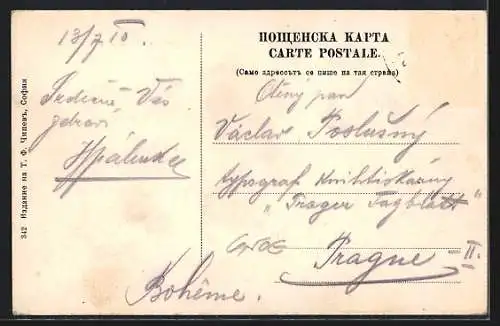 ПОЩЕНСКА КАРТА
CARTE POSTALE.
(Само адрессътъ се пише на тая страна)
13/7 10.
Srdečně Vás
zdraví
Ctěný pan
Václav Poslušný
typograf knihtiskárny
„Prager Tagblatt"
Prague II.
Bohême.
342 Издание на Т. Ф. Чипевъ, София